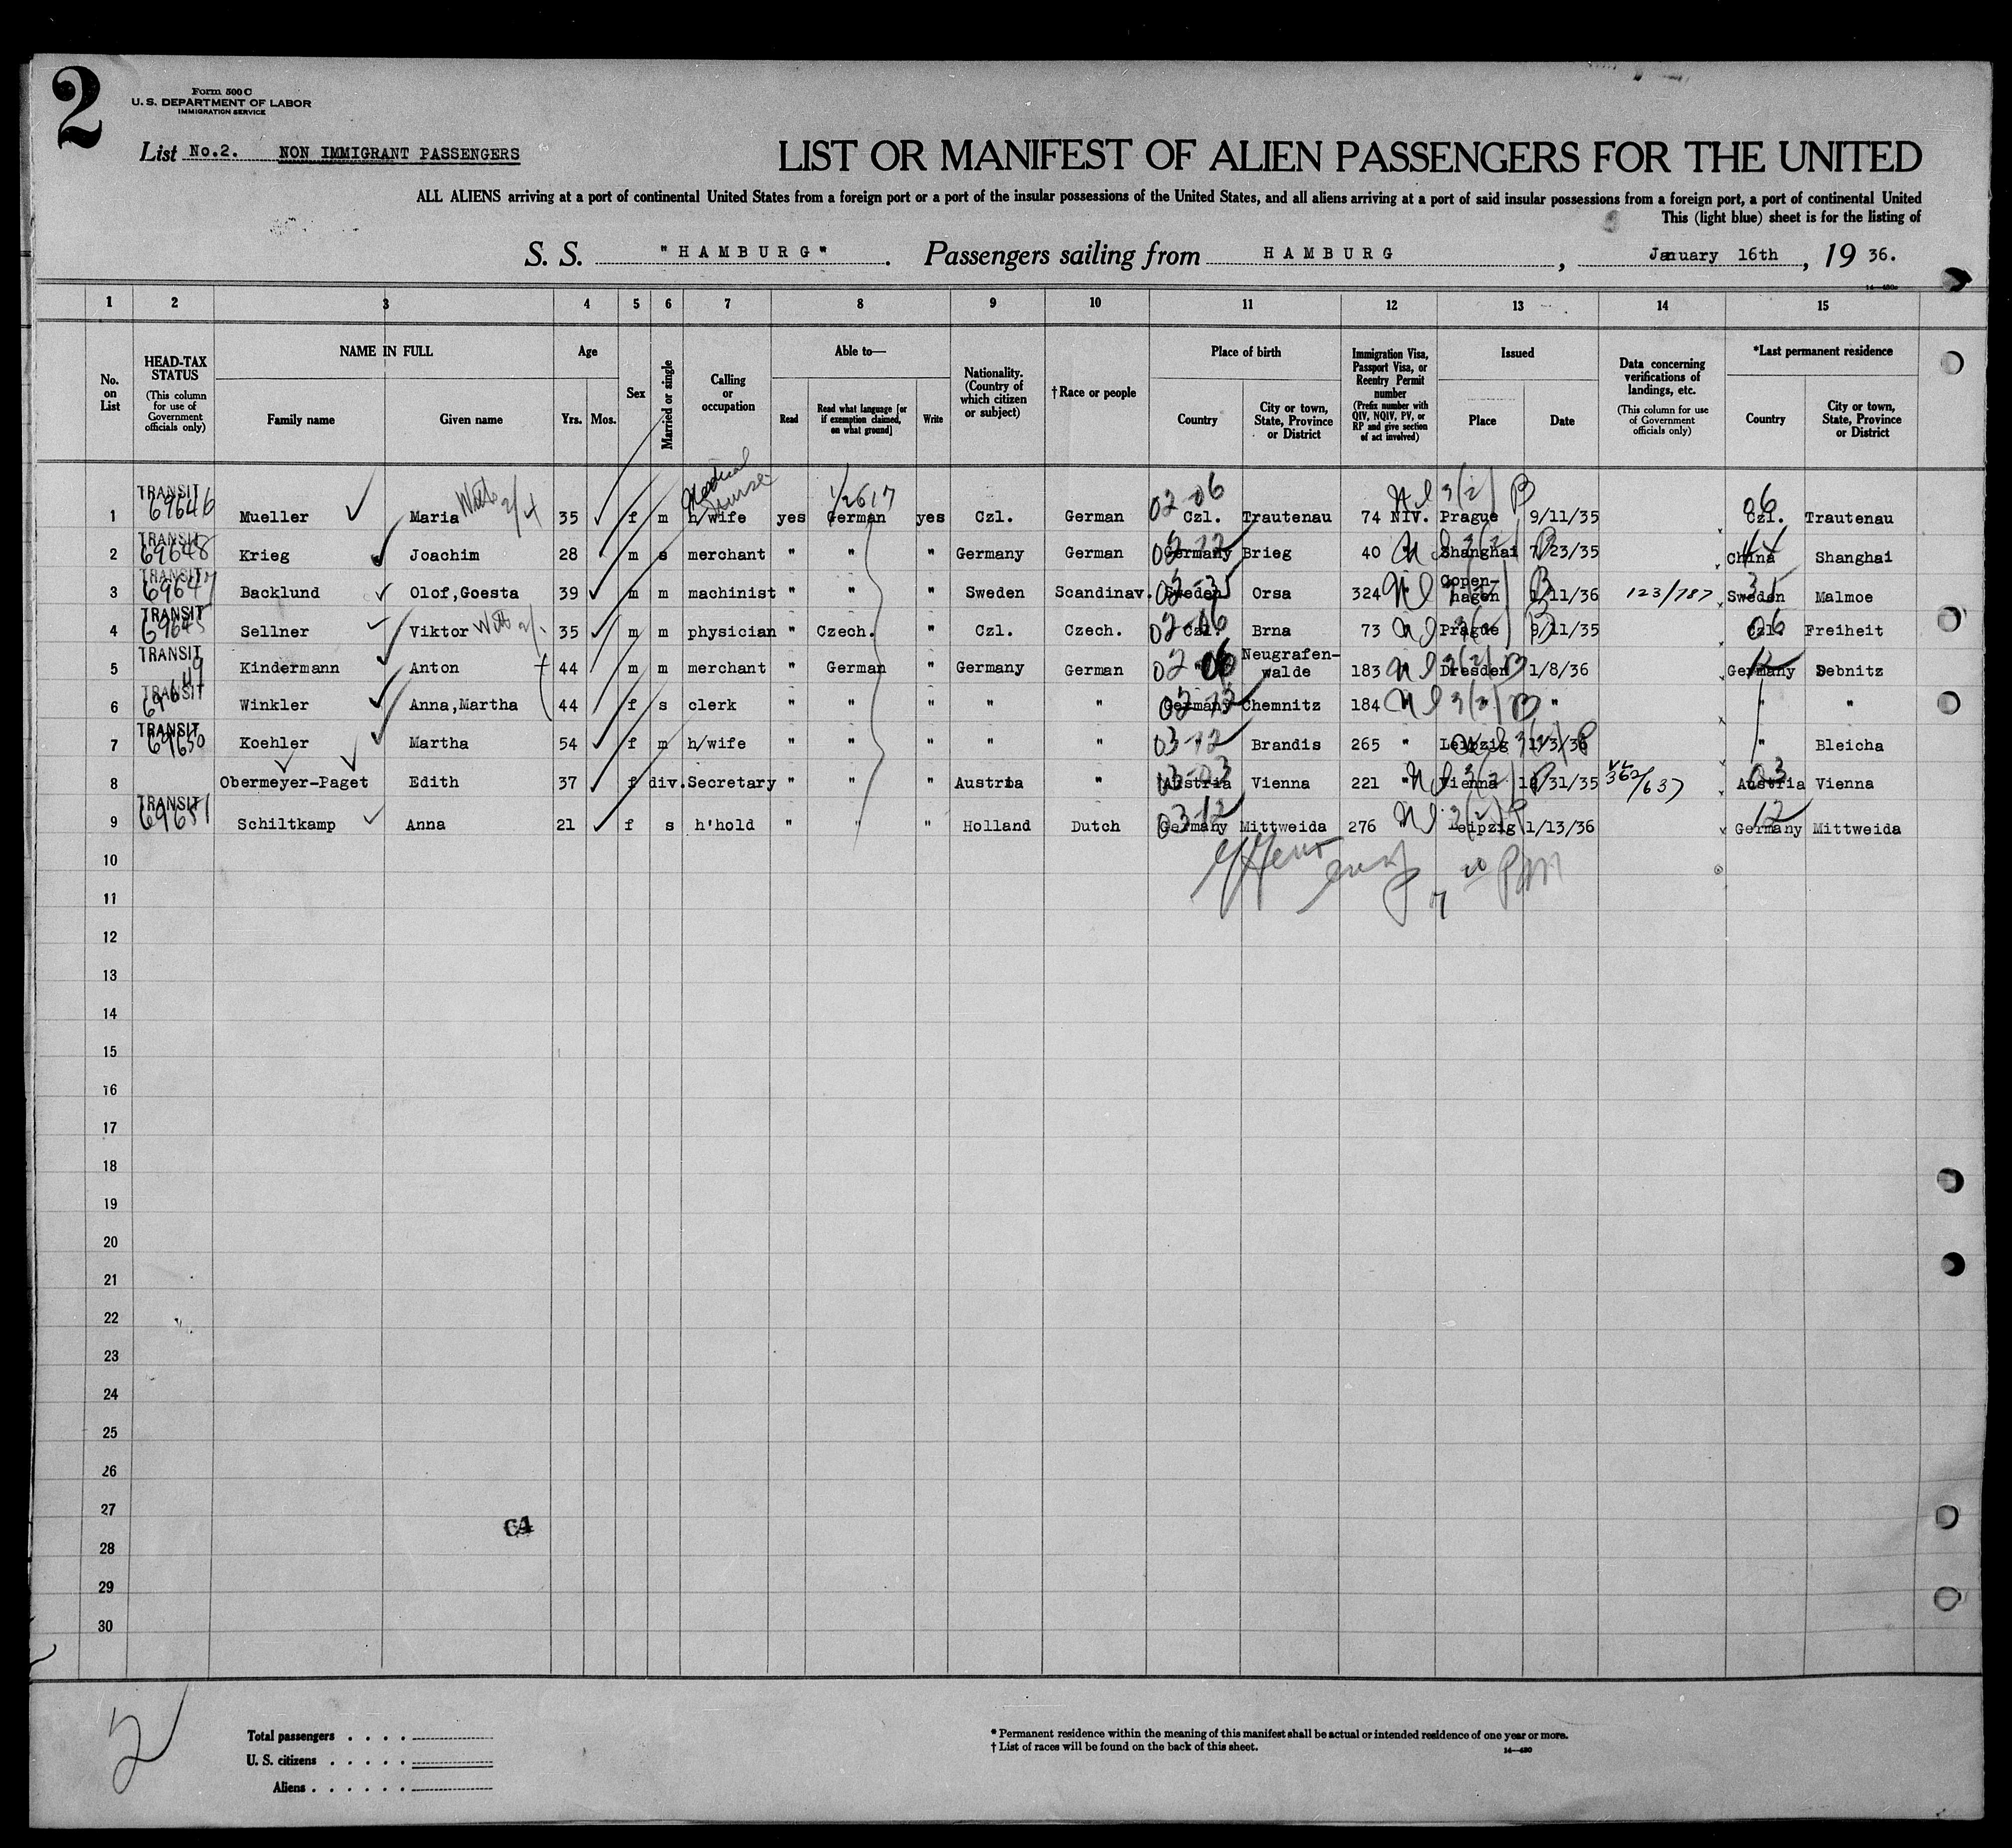 2
Form 500 C
U. S. DEPARTMENT OF LABOR
IMMIGRATION SERVICE
List No.2. NON IMMIGRANT PASSENGERS
LIST OR MANIFEST OF ALIEN PASSENGERS FOR THE UNITED
ALL ALIENS arriving at a port of continental United States from a foreign port or a port of the insular possessions of the United States, and all aliens arriving at a port of said insular possessions from a foreign port, a port of continental United
This (light blue) sheet is for the listing of
S. S. "HAMBURG". Passengers sailing from HAMBURG, January 16th, 1936.
1 2 3 4 5 6 7 8 9 10 11 12 13 14 15
No. on List
HEAD-TAX STATUS
(This column for use of Government officials only)
NAME IN FULL
Family name
Given name
Age
Yrs. Mos.
Sex
Married or single
Calling or occupation
Able to—
Read
Read what language [or if exemption claimed, on what ground]
Write
Nationality. (Country of which citizen or subject)
†Race or people
Place of birth
Country
City or town, State, Province or District
Immigration Visa, Passport Visa, or Reentry Permit number
(Prefix number with QIV, NQIV, PV, or RP and give section of act involved)
Issued
Place
Date
Data concerning verifications of landings, etc.
(This column for use of Government officials only)
*Last permanent residence
Country
City or town, State, Province or District
Medical Nurse
1 TRANSIT 69646 Mueller Maria 35 f m h/wife yes German yes Czl. German 02-06 Czl. Trautenau 74 NIV. Prague 9/11/35 06 Czl. Trautenau
2 TRANSIT 69648 Krieg Joachim 28 m s merchant " " " Germany German Germany Brieg 40 Shanghai 7/23/35 China Shanghai
3 TRANSIT 69647 Backlund Olof,Goesta 39 m m machinist " " " Sweden Scandinav. Sweden Orsa 324 Copen-hagen 1/11/36 123/787 Sweden Malmoe
4 TRANSIT 69645 Sellner Viktor 35 m m physician " Czech. " Czl. Czech. 02-06 Czl. Brna 73 Prague 9/11/35 06 Czl. Freiheit
5 TRANSIT Kindermann Anton 44 m m merchant " German " Germany German 02 06 Neugrafen-walde 183 Dresden 1/8/36 Germany Sebnitz
6 TRANSIT 69649 Winkler Anna,Martha 44 f s clerk " " " " " Germany Chemnitz 184 " " "
7 TRANSIT 69650 Koehler Martha 54 f m h/wife " " " " " 03-12 Brandis 265 " Leipzig 1/3/36 " Bleicha
8 Obermeyer-Paget Edith 37 f div. Secretary " " " Austria " Austria Vienna 221 " Vienna 12/31/35 Austria Vienna
9 TRANSIT 69651 Schiltkamp Anna 21 f s h'hold " " " Holland Dutch 03-12 Germany Mittweida 276 " Leipzig 1/13/36 12 Germany Mittweida
10
11
12
13
14
15
16
17
18
19
20
21
22
23
24
25
26
27
28
29
30
Total passengers
U. S. citizens
Aliens
* Permanent residence within the meaning of this manifest shall be actual or intended residence of one year or more.
† List of races will be found on the back of this sheet.
14—480
2